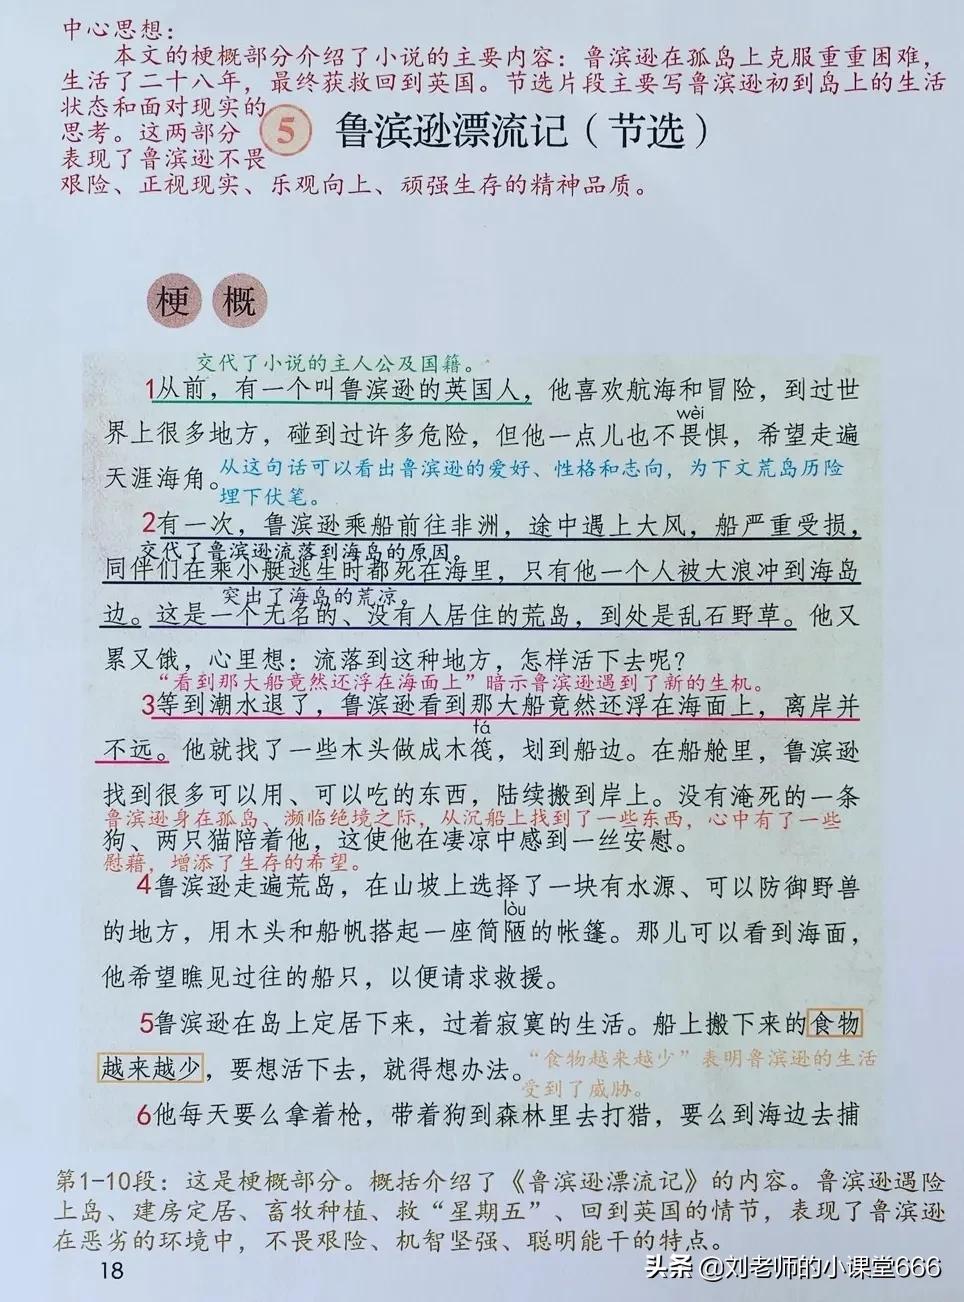 中心思想：
本文的梗概部分介绍了小说的主要内容：鲁滨逊在孤岛上克服重重困难，
生活了二十八年，最终获救回到英国。节选片段主要写鲁滨逊初到岛上的生活
状态和面对现实的
思考。这两部分
表现了鲁滨逊不畏
艰险、正视现实、乐观向上、顽强生存的精神品质。
5 鲁滨逊漂流记（节选）
梗概
交代了小说的主人公及国籍。
1从前，有一个叫鲁滨逊的英国人，他喜欢航海和冒险，到过世
wèi
界上很多地方，碰到过许多危险，但他一点儿也不畏惧，希望走遍
天涯海角。
从这句话可以看出鲁滨逊的爱好、性格和志向，为下文荒岛历险
埋下伏笔。
2有一次，鲁滨逊乘船前往非洲，途中遇上大风，船严重受损，
交代了鲁滨逊流落到海岛的原因。
同伴们在乘小艇逃生时都死在海里，只有他一个人被大浪冲到海岛
突出了海岛的荒凉。
边。这是一个无名的、没有人居住的荒岛，到处是乱石野草。他又
累又饿，心里想：流落到这种地方，怎样活下去呢？
“看到那大船竟然还浮在海面上”暗示鲁滨逊遇到了新的生机。
3等到潮水退了，鲁滨逊看到那大船竟然还浮在海面上，离岸并
fá
不远。他就找了一些木头做成木筏，划到船边。在船舱里，鲁滨逊
找到很多可以用、可以吃的东西，陆续搬到岸上。没有淹死的一条
鲁滨逊身在孤岛、濒临绝境之际，从沉船上找到了一些东西，心中有了一些
狗、两只猫陪着他，这使他在凄凉中感到一丝安慰。
慰藉，增添了生存的希望。
4鲁滨逊走遍荒岛，在山坡上选择了一块有水源、可以防御野兽
lòu
的地方，用木头和船帆搭起一座简陋的帐篷。那儿可以看到海面，
他希望瞧见过往的船只，以便请求救援。
5鲁滨逊在岛上定居下来，过着寂寞的生活。船上搬下来的食物
越来越少，要想活下去，就得想办法。
“食物越来越少”表明鲁滨逊的生活
受到了威胁。
6他每天要么拿着枪，带着狗到森林里去打猎，要么到海边去捕
第1-10段：这是梗概部分。概括介绍了《鲁滨逊漂流记》的内容。鲁滨逊遇险
上岛、建房定居、畜牧种植、救“星期五”、回到英国的情节，表现了鲁滨逊
在恶劣的环境中，不畏艰险、机智坚强、聪明能干的特点。
18
头条 @刘老师的小课堂666